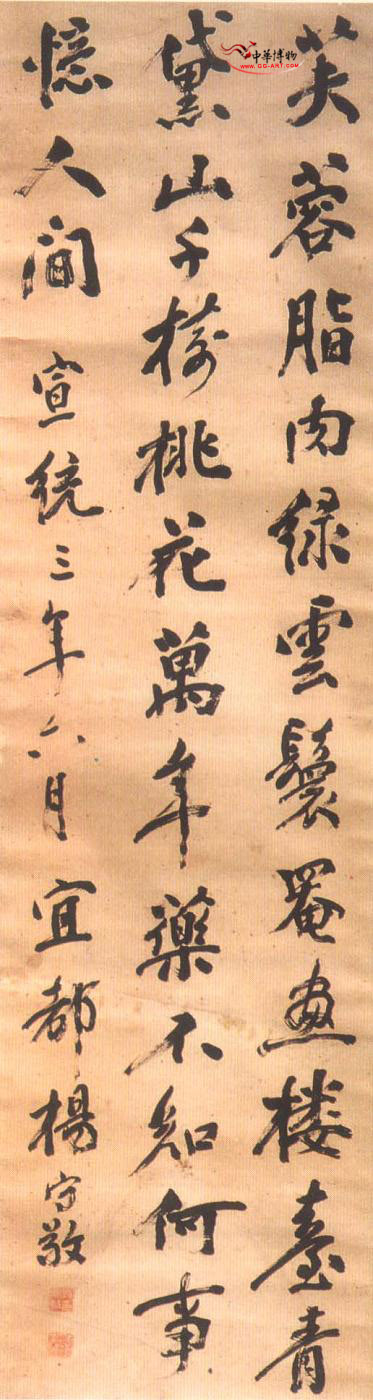 芙蓉脂肉緑雲鬟罨畫楼臺青
黛山千樹桃花萬年藥不知何事
憶人間
宣統三年六月宜都楊守敬
中華博物
www.gg-art.com